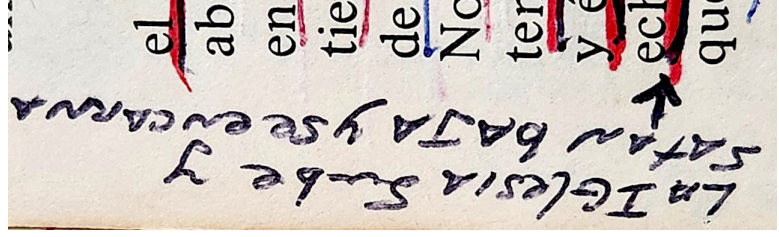 el
ab
en
tie
de
No
ter
y é
ech
que
LA IGlesia Sube y
SATAN bAJA y se encARNA